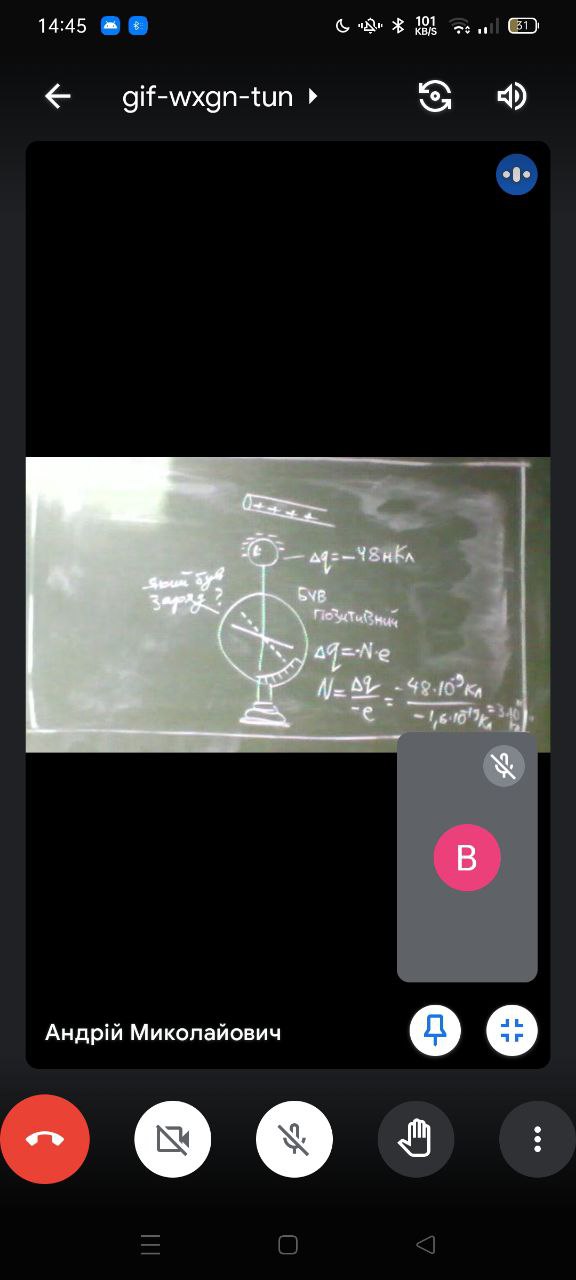 14:45
101
KB/S
31
gif-wxgn-tun
++++
Δq=-48нКл
який був
заряд?
БУВ
ПОЗИТИВНИЙ
Δq=-N·e
N=Δq/-e = -48·10⁻⁹Кл/-1,6·10⁻¹⁹Кл
B
Андрій Миколайович